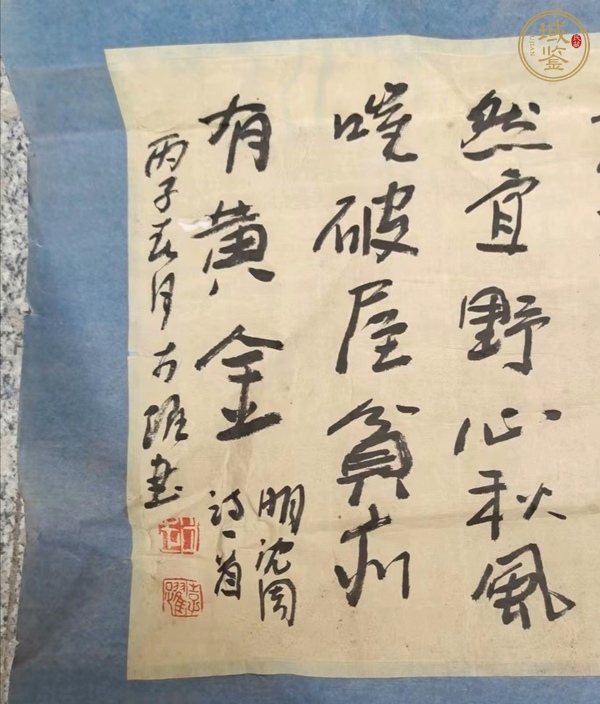 然宜野心秋風
破屋貧亦
有黄金
明沈周
詩一首
丙子春月 書
域鉴